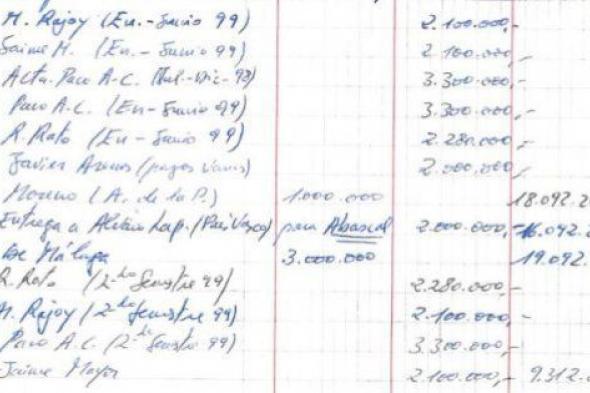 M. Rajoy (En.-Junio 99) 2.100.000,-
Jaime M. (En.-Junio 99) 2.100.000,-
Acta. Paco A-C. (Jul.-Dic-98) 3.300.000,-
Paco A-C. (En-Junio 99) 3.300.000,-
R. Rato (En-Junio 99) 2.280.000,-
Javier Arenas (pagos varios) 2.000.000,-
Moreno (A. de la P.) 1.000.000 18.092.2
Entrega a Lap. (País Vasco) para Abascal 2.000.000,- 16.092.2
De Málaga 3.000.000 19.092.
R. Rato (2º Semestre 99) 2.280.000,-
M. Rajoy (2º Semestre 99) 2.100.000,-
Paco A.C. (2º Semestre 99) 3.300.000,-
Jaime Mayor 2.100.000,- 9.312.